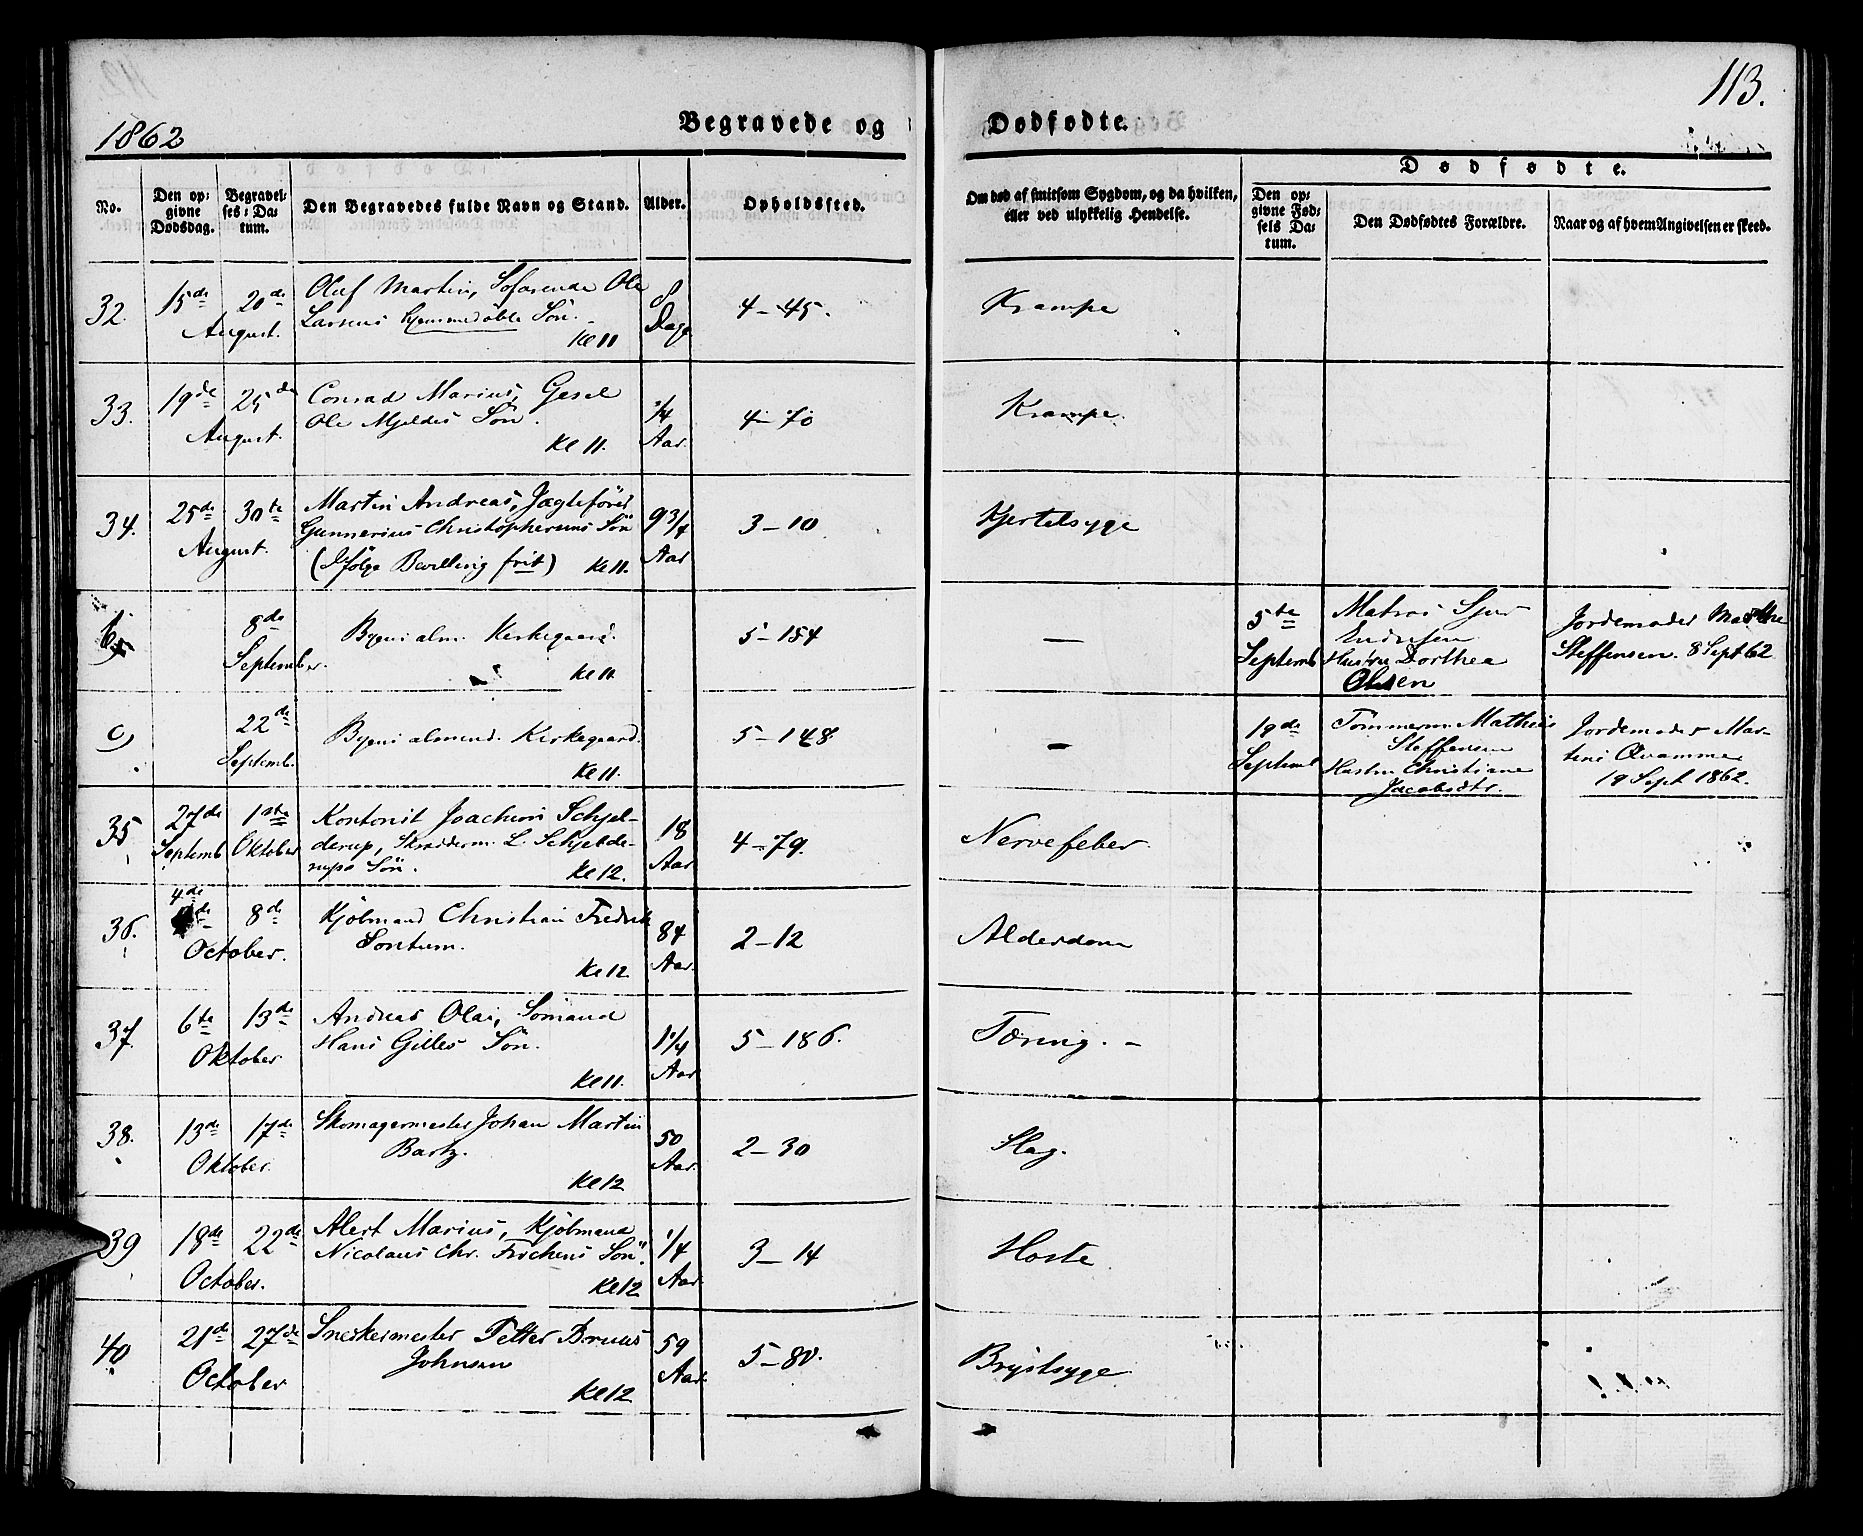 113.
1862
Begravede og Dødfødte.
Dødfødte.
No.
Den opgivne Dødsdag.
Begravelses-Datum.
Den Begravedes fulde Navn og Stand.
Alder.
Opholdssted.
Om død af smitsom Sygdom, og da hvilken, eller ved ulykkelig Hendelse.
Den opgivne Fødsels Datum.
Den Dødfødtes Forældre.
Naar og af hvem Angivelsen er skeed.
32. 15de 20de Oluf Martin, Søfarende Ole 8 4-45. Krampe
August. Larsens hjemmedøbte Søn. Dage
Kl 11
33. 19de 25de Conrad Marius, Gesel 1/4 4-70 Krampe.
August. Ole Mjeldes Søn. Aar
Kl 11.
34. 25de 30te Martin Andreas, Jægtefører 9 3/4 3-10 Kjertelsyge
August. Gunnerius Christophersens Søn Aar
(Ifølge Bevilling frit) Kl 11.
8de Byens alm. Kirkegaard. 5-154 — 5te Matros Sjur Jordemoder Marthe
September. Endresen Steffensen. 8 Sept 62
Kl 11. Septemb Hustru Dorthea
Olsen
c) 22de Byens almind. Kirkegaard. 5-148 — 19de Tømmerm. Mathias Jordemoder Mar-
Septemb. Steffensen tini Qvamme
Kl 11. Septemb Hustru Christiane 19 Sept 1862.
Jacobsdtr.
35 27de 1ste Kontorist Joachim Schjel- 18 4-79. Nervefeber.
Septemb Oktober derup, Skrædderm. L. Schjelde- Aar
rups Søn. Kl 12.
36. 4de 8de Kjøbmand Christian Fredrik 84 2-12 Alderdom
October. Sontum. Aar
Kl 12
37. 6te 13de Andreas Olai, Sømand 1 1/4 5-186. Tæring. -
Oktober Hans Gilles Søn. Aar
Kl 11.
38. 13de 17de Skomagermester Johan Martin 50 2-30 Slag.
Oktober. Bartz. Aar
Kl 12
39 18de 22de Alert Marius, Kjøbmand 1/4 3-14 Hoste
October. Nicolaus Chr. Frichens Søn. Aar
Kl 12
40 21de 27de Snedkermester Petter Bruus 59 5-80. Brystsyge
October Johnsen Aar
Kl 12